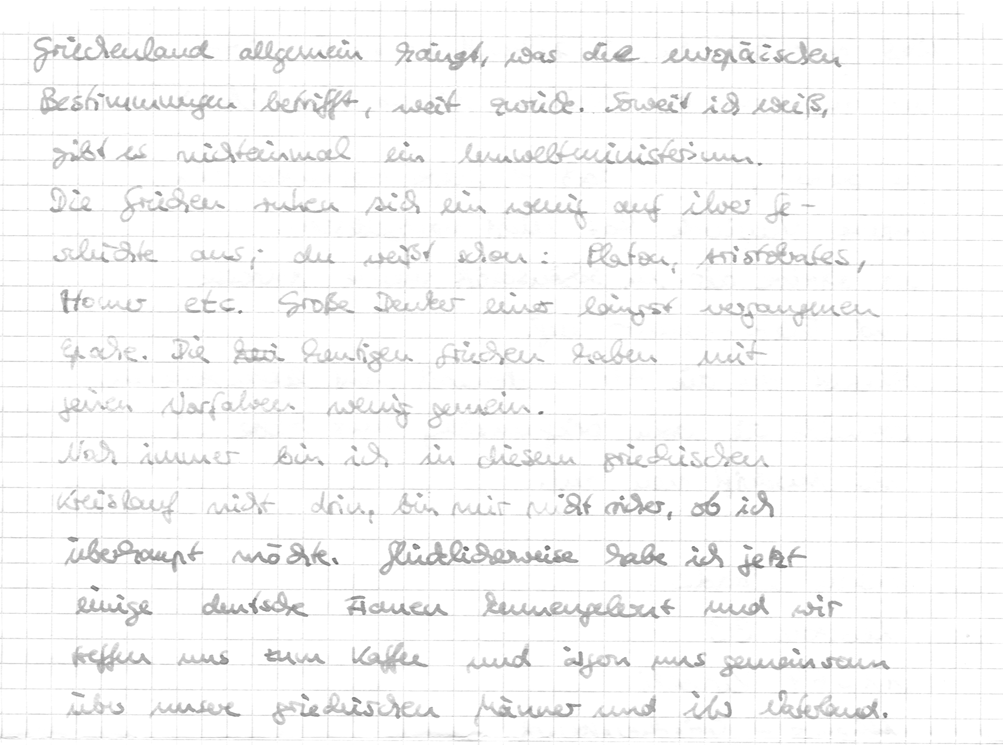 Griechenland allgemein hängt, was die europäischen
Bestimmungen betrifft, weit zurück. Soweit ich weiß,
gibt es nichteinmal ein Umweltministerium.
Die Griechen ruhen sich ein wenig auf ihrer Ge-
schichte aus; du weißt schon: Platon, Aristokrates,
Homer etc. Große Denker einer längst vergangenen
Epoche. Die heutigen Griechen haben mit
jenen Vorfahren wenig gemein.
Noch immer bin ich in diesem griechischen
Kreislauf nicht drin, bin mir nicht sicher, ob ich
überhaupt möchte. Glücklicherweise habe ich jetzt
einige deutsche Frauen kennengelernt und wir
treffen uns zum Kaffee und ärgern uns gemeinsam
über unsere griechischen Männer und ihr Vaterland.